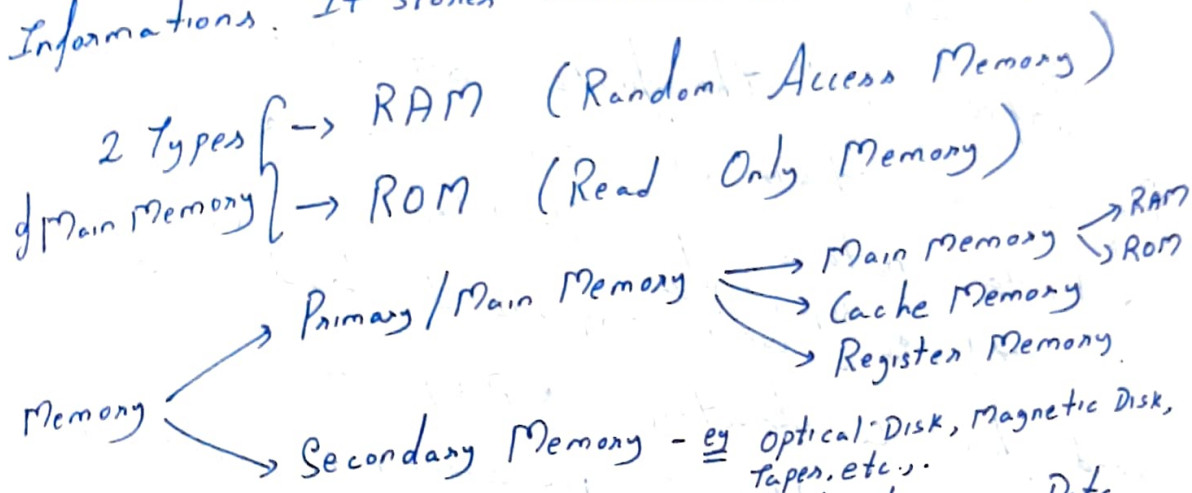 Informations. It stores
2 Types → RAM (Random-Access Memory)
of Main Memory → ROM (Read Only Memory)
Primary/Main Memory → Main Memory → RAM
→ ROM
→ Cache Memory
→ Register Memory
Memory
Secondary Memory - eg Optical Disk, Magnetic Disk,
Tapes, etc..